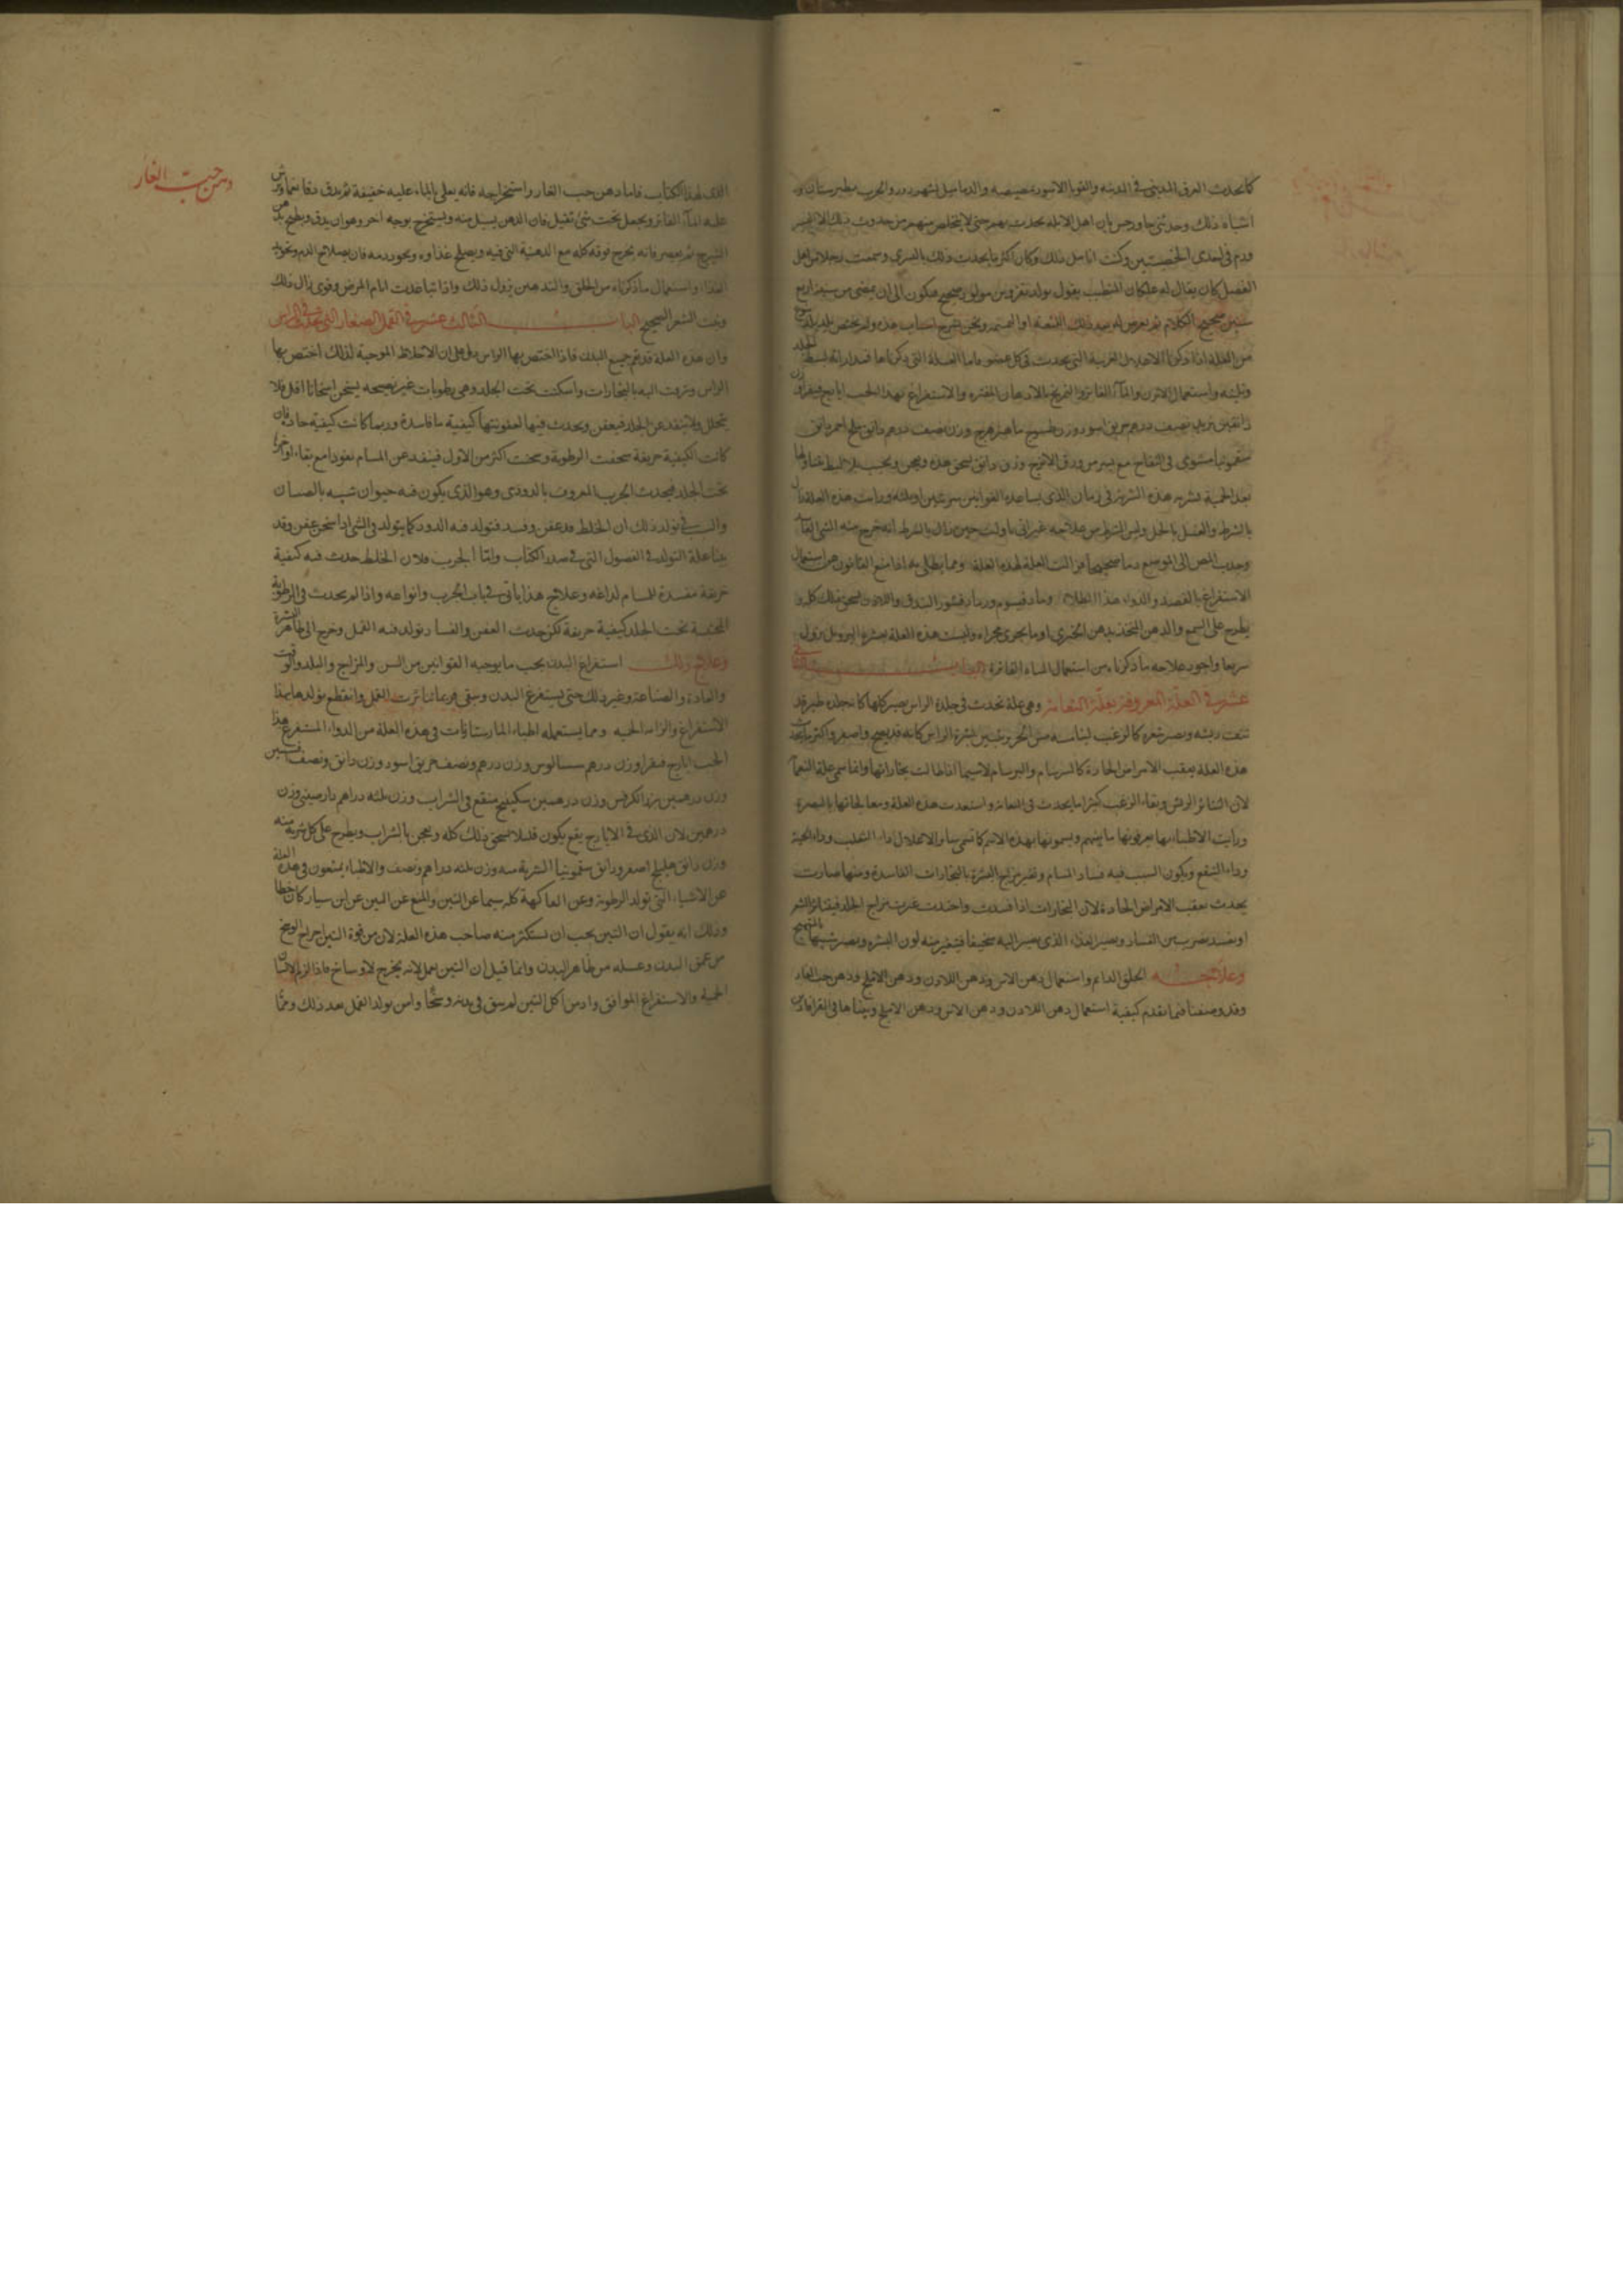 كما يحدث العرق المديني في المدينة والقوبا الاسود بمصيصه والدماميل بشهرزور والجرب بطبرستان و
اشباه ذلك وحدثني ان اهل الابله يحدث بهم حتى لا يتخلص منهم من حدوث ذلك الا اليسير
ورم في احدى الخصيتين وكنت انا مثل ذلك وكان اكثر ما يحدث ذلك باليسرى وسمعت رجلا من اهل
الفضل كان يقال له المتطبب يقول يولد بقزوين مولود صحيح فيكون الى ان يمضي من سنه اربع
سنين صحيح الكلام ثم يعرض له بعد ذلك
من العلة اذا ذكرنا الاعلال الغريبة التي يحدث في كل عضو فاما العلة التي ذكرناها
وتليينه واستعمال الابزن والماء الفاتر والتمريخ بالادهان المفتره والاستفراغ بهذا الحب ايارج فيقرا وزن
دانقين تربد نصف درهم خربق اسود وزن طسوج ماهيزهرج وزن نصف درهم دانق ملح احمر دانق
سقمونيا مشوى في التفاح مع يسير من ورق الاترج وزن دانق يسحق هذه ويعجن ويحبب
بعد الحمية بشربه هذه الشربة في زمان الذي يساعده القوانين مرتين او ثلثه ورايت هذه العلة
بالشرط والغسل بالخل وليس الشرط من علاجه غير اني ما رايت حين زال بالشرط انه خرج منه الشي الفاسد
وجذب المص الى الموضع دما صحيحا فزالت العلة لهذه العلة ومما يطلى به اذا منع القانون من استعمال
الاستفراغ بالفصد والدواء هذا الطلاء رماد قيسوم ورماد قشور البندق واللاذن يسحق ذلك كله و
يطرح على الشمع والدهن المتخذ بدهن الخيري او ما يجري مجراه وليست هذه العلة بعسرة البرء بل يزول
سريعا واجود علاجه ما ذكرناه من استعمال المياه الفاترة الباب الثاني
عشر في العلة المعروفة بعلة النعامة وهي علة تحدث في جلدة الراس يصير كلها كانه جلدة طير قد
نتف ريشه ويصير شعره كالزغب ويتبين بشرة الراس كانه قديح واصفر واكثر ما يحدث
هذه العلة بعقب الامراض الحادة كالسرسام والبرسام لاسيما اذا طالت بحاراتها وانما سمى علة النعامة
لان تناثر الريش وبقاء الزغب كثيرا ما يحدث في النعام وشاهدت هذه العلة ومعالجاتها بالبصرة
ورايت الاطباء بها يعرفونها ما بينهم ويسمونها بهذه الاسم كما سمى ساير الاعلال داء الثعلب وداء الحية
وداء ويكون السبب فيه فساد المسام وتغير مزاج البشرة بالبخارات الفاسدة ومنها صارت
يحدث بعقب الامراض الحادة لان البخارات اذا فسدت واحتدت غيرت مزاج الجلد فيتناثر الشعر
او يفسد بضرب من الفساد ويصير الغذاء الذي يصير اليه سخيفا فيتغير منه لون البشره ويصير شبيها بالتهيج
وعلاجه الحلق الدايم واستعمال دهن الاس ودهن اللاذن ودهن الاملج ودهن حب الغار
وقد وصفنا فيما تقدم كيفية استعمال دهن اللاذن ودهن الاس ودهن الاملج وبيناها في القراباذين
الذي لهذا الكتاب فاما دهن حب الغار واستخراجه فانه يغلى بالماء عليه خفيفة ثم يدق دقا ناعما ويرش
عليه الماء الفاتر ويجعل تحت شئ ثقيل فان الدهن يسيل منه ويستخرج بوجه اخر وهو ان يدق ويطرح
الشيرج ثم يعصر فانه يخرج قوته كله مع الدهنية التي فيه ويصلح غذاوه ويجود دمه فان بصلاح الدم وتجويد
الغذاء واستعمال ما ذكرناه من الحلق والتدهين يزول ذلك واذا تباعدت ايام المرض وقوى زال ذلك
ونبت الشعر الصحيح الباب الثالث عشر في القمل الصغار التي تحدث في الراس
وان هذه العلة قد يعم جميع البدن فاذا اختص بها الراس دل على ان الاخلاط الموجبة لذلك اختص بها
الراس وترقت اليه بالبخارات واسكنت تحت الجلد وهي رطوبات غير نضيجه يسخن اسخانا اقل فلا
يتحلل ولا ينفذ عن الجلد فيعفن ويحدث فيها لعفونتها كيفية ما فاسدة وربما كانت كيفية حادة فان
كانت الكيفية حريفة سخفت الرطوبة وسخنت اكثر من الاول فينفذ عن المسام نفوذا مع بقاء اواخرها
تحت الجلد فيحدث الجرب المعروف بالدودي وهو الذي يكون فيه حيوان شبيه بالصيبان
والسبب في تولد ذلك ان الخلط قد عفن وفسد فتولد فيه الدود كما يتولد في الشئ اذا سخن عفن وقد
بينا علة التولد في الفصول التي في صدر الكتاب واما الجرب فلان الخلط حدث فيه كيفية
حريفة مفسدة للمسام لداغه وعلاج هذا ياتي في باب الجرب وانواعه واذا لم يحدث في الرطوبة
المحتبسة تحت الجلد كيفية حريفة لكن حدث العفن والفساد تولد فيه القمل وخرج الى ظاهر البشرة
وعلاج ذلك استفراغ البدن بحسب ما يوجبه القوانين من السن والمزاج والبلد والوقت
والعادة والصناعة وغير ذلك حتى يستفرغ البدن وينقى فربما تناثرت القمل وانقطع تولدها بهذا
الاستفراغ والزام الحمية ومما يستعمله اطباء المارستانات في هذه العلة من الدواء المستفرغ هذا
الحب ايارج فيقرا وزن درهم سيساليوس وزن درهم ونصف خربق اسود وزن دانق ونصف افسنتين
وزن درهمين بزر الكرفس وزن درهمين سكبينج منقع في الشراب وزن ثلثه دراهم دارصيني وزن
درهمين لان الذي في الايارج يقع يكون قليلا يسحق ذلك كله ويعجن بالشراب ويطرح على كل شربة منه
وزن دانق هليلج اصفر ودانق سقمونيا الشربة منه وزن ثلثه دراهم ونصف والاطباء يمنعون في هذه العلة
عن الاشياء التي تولد الرطوبة وعن الفاكهة كله سيما عن التين والمنع عن التين عن ابن سيار كان خطا
وذلك انه يقول ان التين يجب ان يستكثر منه صاحب هذه العلة لان من قوة التين اخراج الوسخ
من عمق البدن وغسله من ظاهر البدن وانما قيل ان التين يقمل لانه يخرج الاوساخ فاذا لزم الانسان
الحمية والاستفراغ الموافق وادمن اكل التين لم يبق في بدنه وسخا وامن تولد القمل بعد ذلك ومما
دهن حب الغار